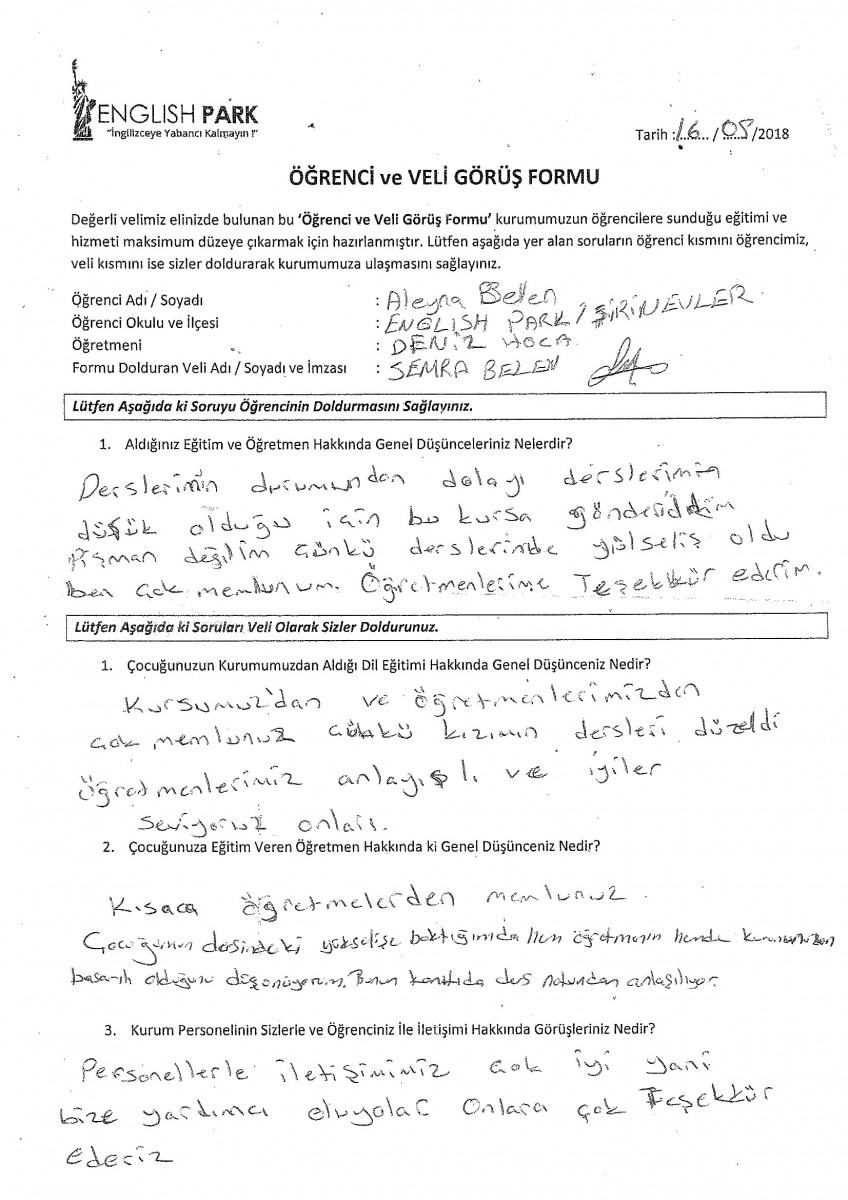 ENGLISH PARK
"İngilizceye Yabancı Kalmayın !"
Tarih : 16 / 05 /2018
ÖĞRENCİ ve VELİ GÖRÜŞ FORMU
Değerli velimiz elinizde bulunan bu 'Öğrenci ve Veli Görüş Formu' kurumumuzun öğrencilere sunduğu eğitimi ve
hizmeti maksimum düzeye çıkarmak için hazırlanmıştır. Lütfen aşağıda yer alan soruların öğrenci kısmını öğrencimiz,
veli kısmını ise sizler doldurarak kurumumuza ulaşmasını sağlayınız.
Öğrenci Adı / Soyadı : Aleyna Belen
Öğrenci Okulu ve İlçesi : ENGLISH PARK / ŞİRİNEVLER
Öğretmeni : DENİZ HOCA
Formu Dolduran Veli Adı / Soyadı ve İmzası : SEMRA BELEN
Lütfen Aşağıda ki Soruyu Öğrencinin Doldurmasını Sağlayınız.
1. Aldığınız Eğitim ve Öğretmen Hakkında Genel Düşünceleriniz Nelerdir?
Derslerimin durumundan dolayı derslerimin
düşük olduğu için bu kursa gönderiddim
Pişman değilim Çünkü derslerimde yülseliş oldu
ben çok memlunum. Öğretmenlerime Teşekkür ederim.
Lütfen Aşağıda ki Soruları Veli Olarak Sizler Doldurunuz.
1. Çocuğunuzun Kurumumuzdan Aldığı Dil Eğitimi Hakkında Genel Düşünceniz Nedir?
Kursumuz'dan ve öğretmenlerimizden
çok memlunuz Çünkü kızımın dersleri düzeldi
öğretmenlerimiz anlayışlı ve iyiler
seviyoruz onları.
2. Çocuğunuza Eğitim Veren Öğretmen Hakkında ki Genel Düşünceniz Nedir?
Kısaca öğretmelerden memlunuz.
Çocuğumun dersindeki yükselişe baktığımda hem öğretmenin hemde
başarılı olduğunu düşünüyorum. Bunun kanıtıda ders notundan anlaşılıyor.
3. Kurum Personelinin Sizlerle ve Öğrenciniz İle İletişimi Hakkında Görüşleriniz Nedir?
Personellerle iletişimimiz çok iyi yani
bize yardımcı oluyolar Onlara çok Teşekkür
ederiz